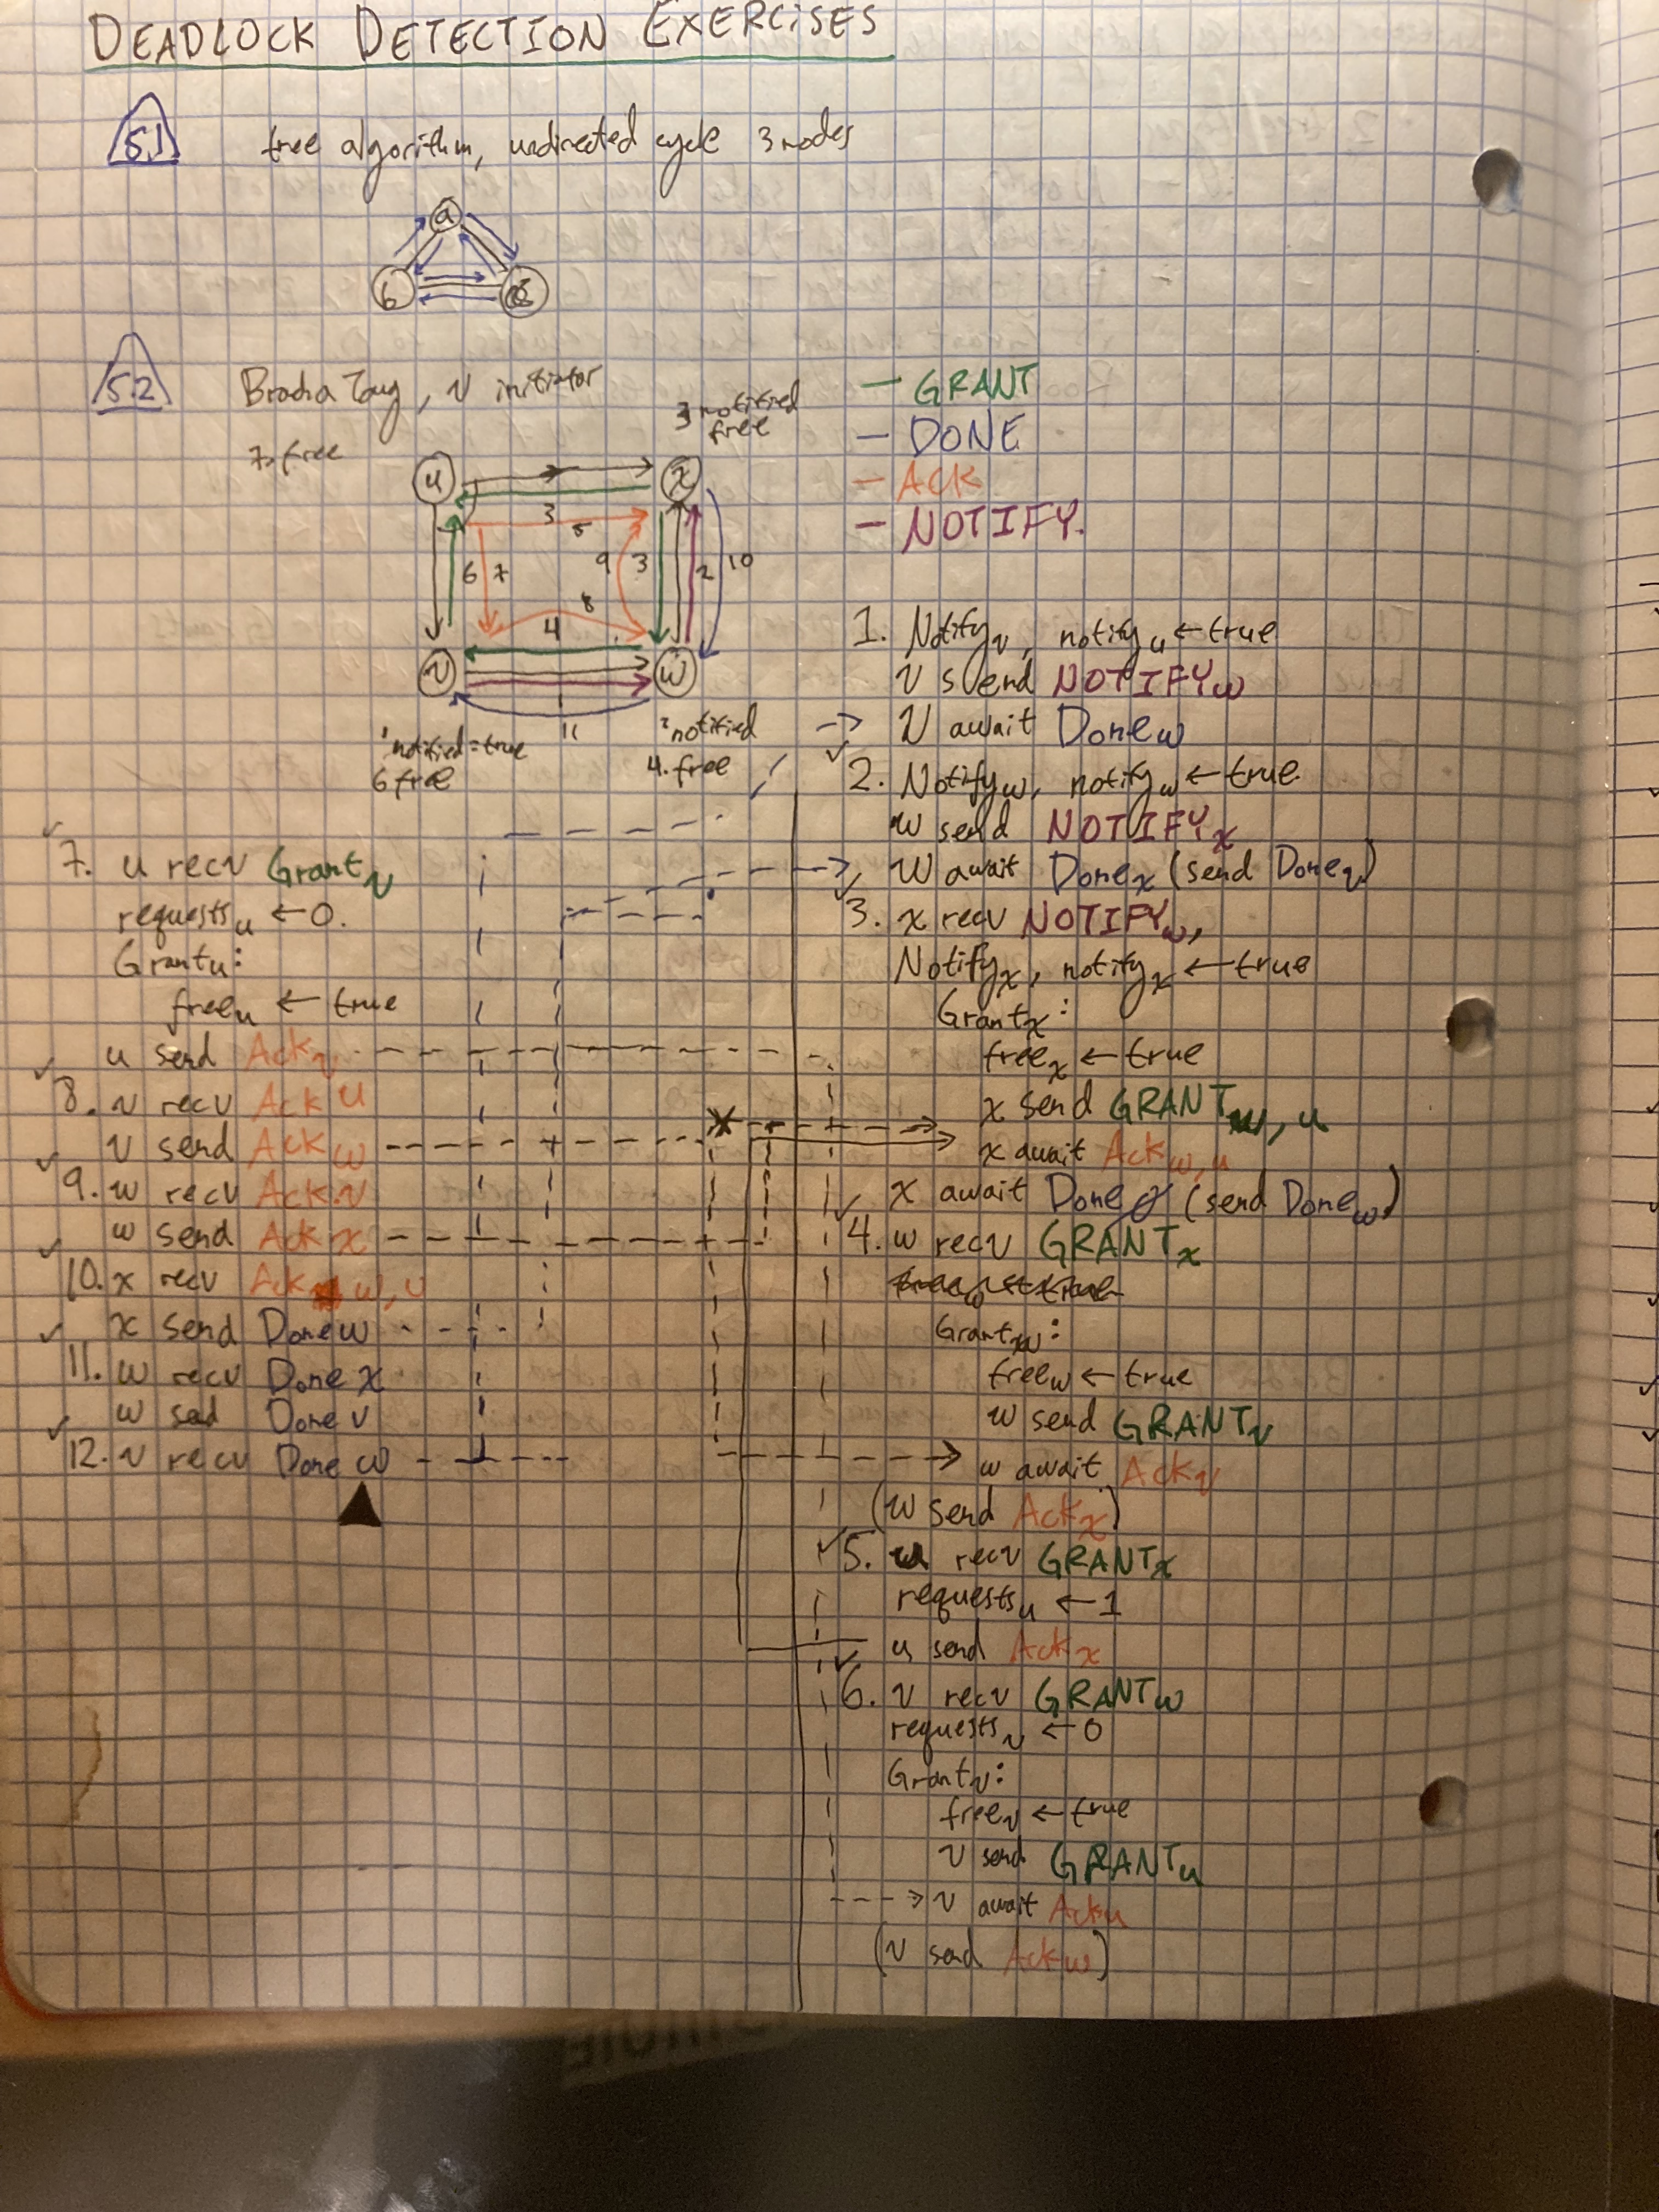 DEADLOCK DETECTION EXERCISES
5.1 tree algorithm, undirected cycle 3 nodes
a
b
5.2 Bracha Toug, v initiator
— GRANT
— DONE
— ACK
— NOTIFY.
3 notified
free
7. free
u
x
3
5
6 7
9 3 2 10
8
4
v
w
11
1 notified = true
6 free
2 notified
4. free
1. Notify v, notify u ← true
v send NOTIFY w
v await Done w
2. Notify w, notify w ← true
w send NOTIFY x
w await Done x (send Done v)
3. x recv NOTIFY w,
Notify x, notify x ← true
Grant x:
free x ← true
x send GRANT w, u
x await Ack w, u
x await Done (send Done w)
4. w recv GRANT x
free w ← true
Grant w:
free w ← true
w send GRANT v
w await Ack v
(w send Ack x)
5. u recv GRANT x
requests u ← 1
u send Ack x
6. v recv GRANT w
requests v ← 0
Grant v:
free v ← true
v send GRANT u
v await Ack u
(v send Ack w)
7. u recv Grant v
requests u ← 0.
Grant u:
free u ← true
u send Ack v
8. v recv Ack u
v send Ack w
9. w recv Ack v
w send Ack x
10. x recv Ack w, u
x send Done w
11. w recv Done x
w sed Done v
12. v recv Done w